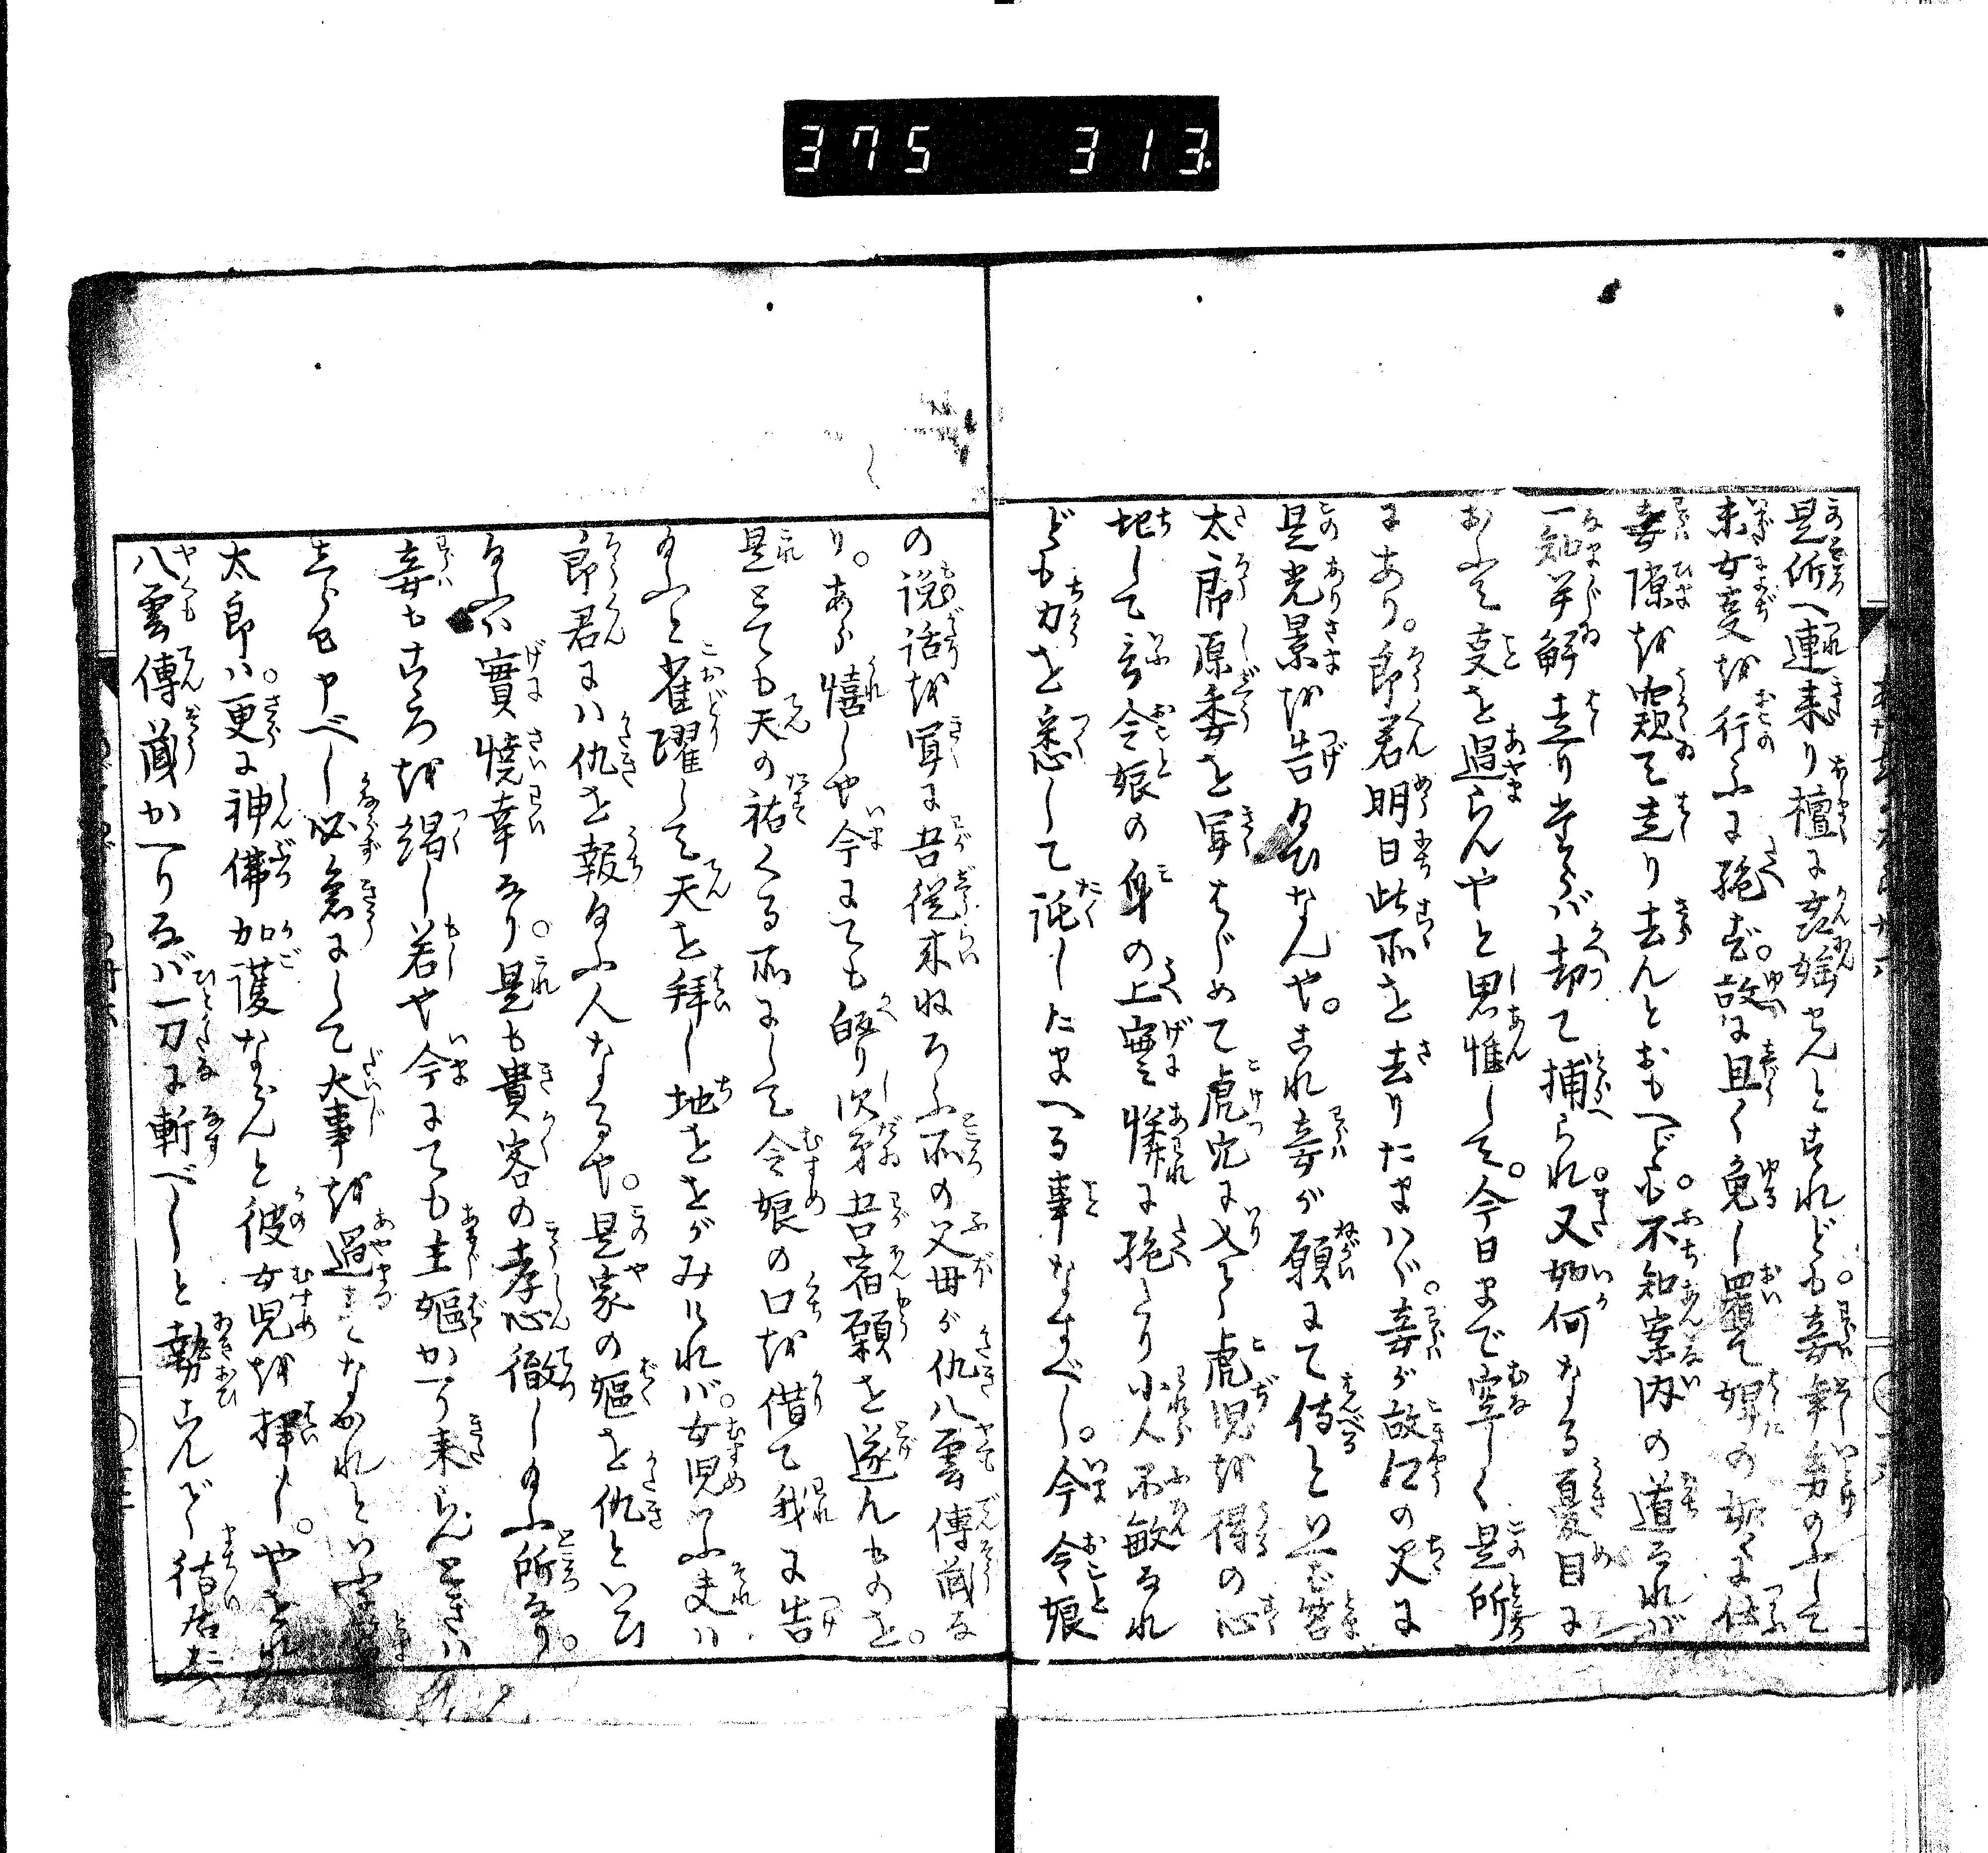 375 313
是所へ連来り檀に姦婬せんとすれども。妾年幼のふして
未女夌を行ふに絶ず。故に且く免し置て婢の如くに仕
妾隙を窺て走り去んとおもへども。不知案内の道なれば
一知半解走り出さば却て捕られ。又如何なる憂目に
あふて夌を過らんやと思惟して。今日まで空しく是所
にあり。郎君明日此所を去りたまハゞ。妾が故江の父に
是光景を告給ひなんや。これ妾が願にて侍ると
太郎原委を聞はじめて虎穴に入て虎児を得の心
地して言令娘の身の上實憐に絶たり小人不敏なれ
ども力を悉して託したまへる事なすべし。今令娘
の説話を聞に吾従来ねろふ所の父母が仇八雲傳蔵な
り。あら嬉しや今にても皈り次第吾宿願を遂んものを。
是とても天の祐くる所にして令娘の口を借て我に告
給ふと雀躍して天を拝し地をおがみければ。女児いふ夫ハ
郎君にハ仇を報給ふ人なるや。是家の嫗を仇といひ
給ふハ實僥幸なり。是も貴客の孝心徹し給ふ所なり。
妾もちから を竭し若や今にても主嫗かへり来らんときハ
しらせ申べし必急にして大事を過まくなかれといふ
太郎ハ。更に神佛加護ならんと彼女児を拝し。やをれ
八雲傳蔵かへりなバ一刀に斬べしと勢こんで待居